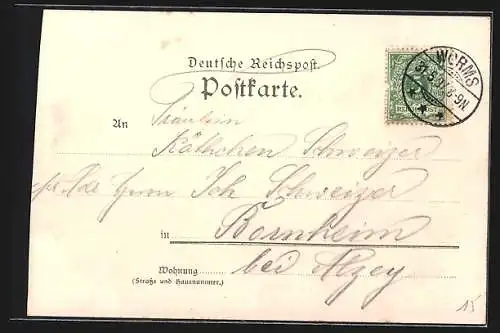 Deutsche Reichspost.
Postkarte.
WORMS
An Fräulein
Käthchen Schweizer
Herrn Joh Schweizer
in Bornheim
Wohnung bei Alzey
(Straße und Hausnummer.)
15